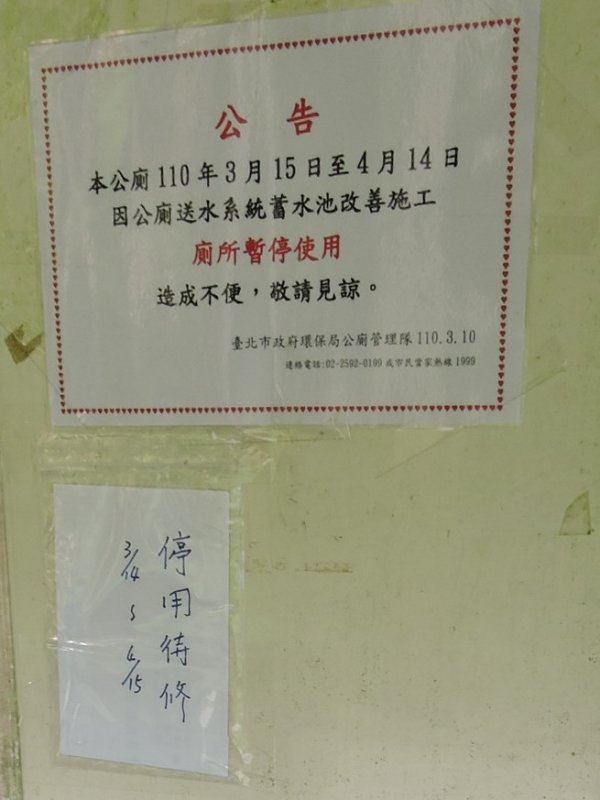 公告
本公廁110年3月15日至4月14日
因公廁送水系統蓄水池改善施工
廁所暫停使用
造成不便，敬請見諒。
臺北市政府環保局公廁管理隊110.3.10
連絡電話:02-2592-0199或市民當家熱線1999
停用待修
3/14 ~ 4/15